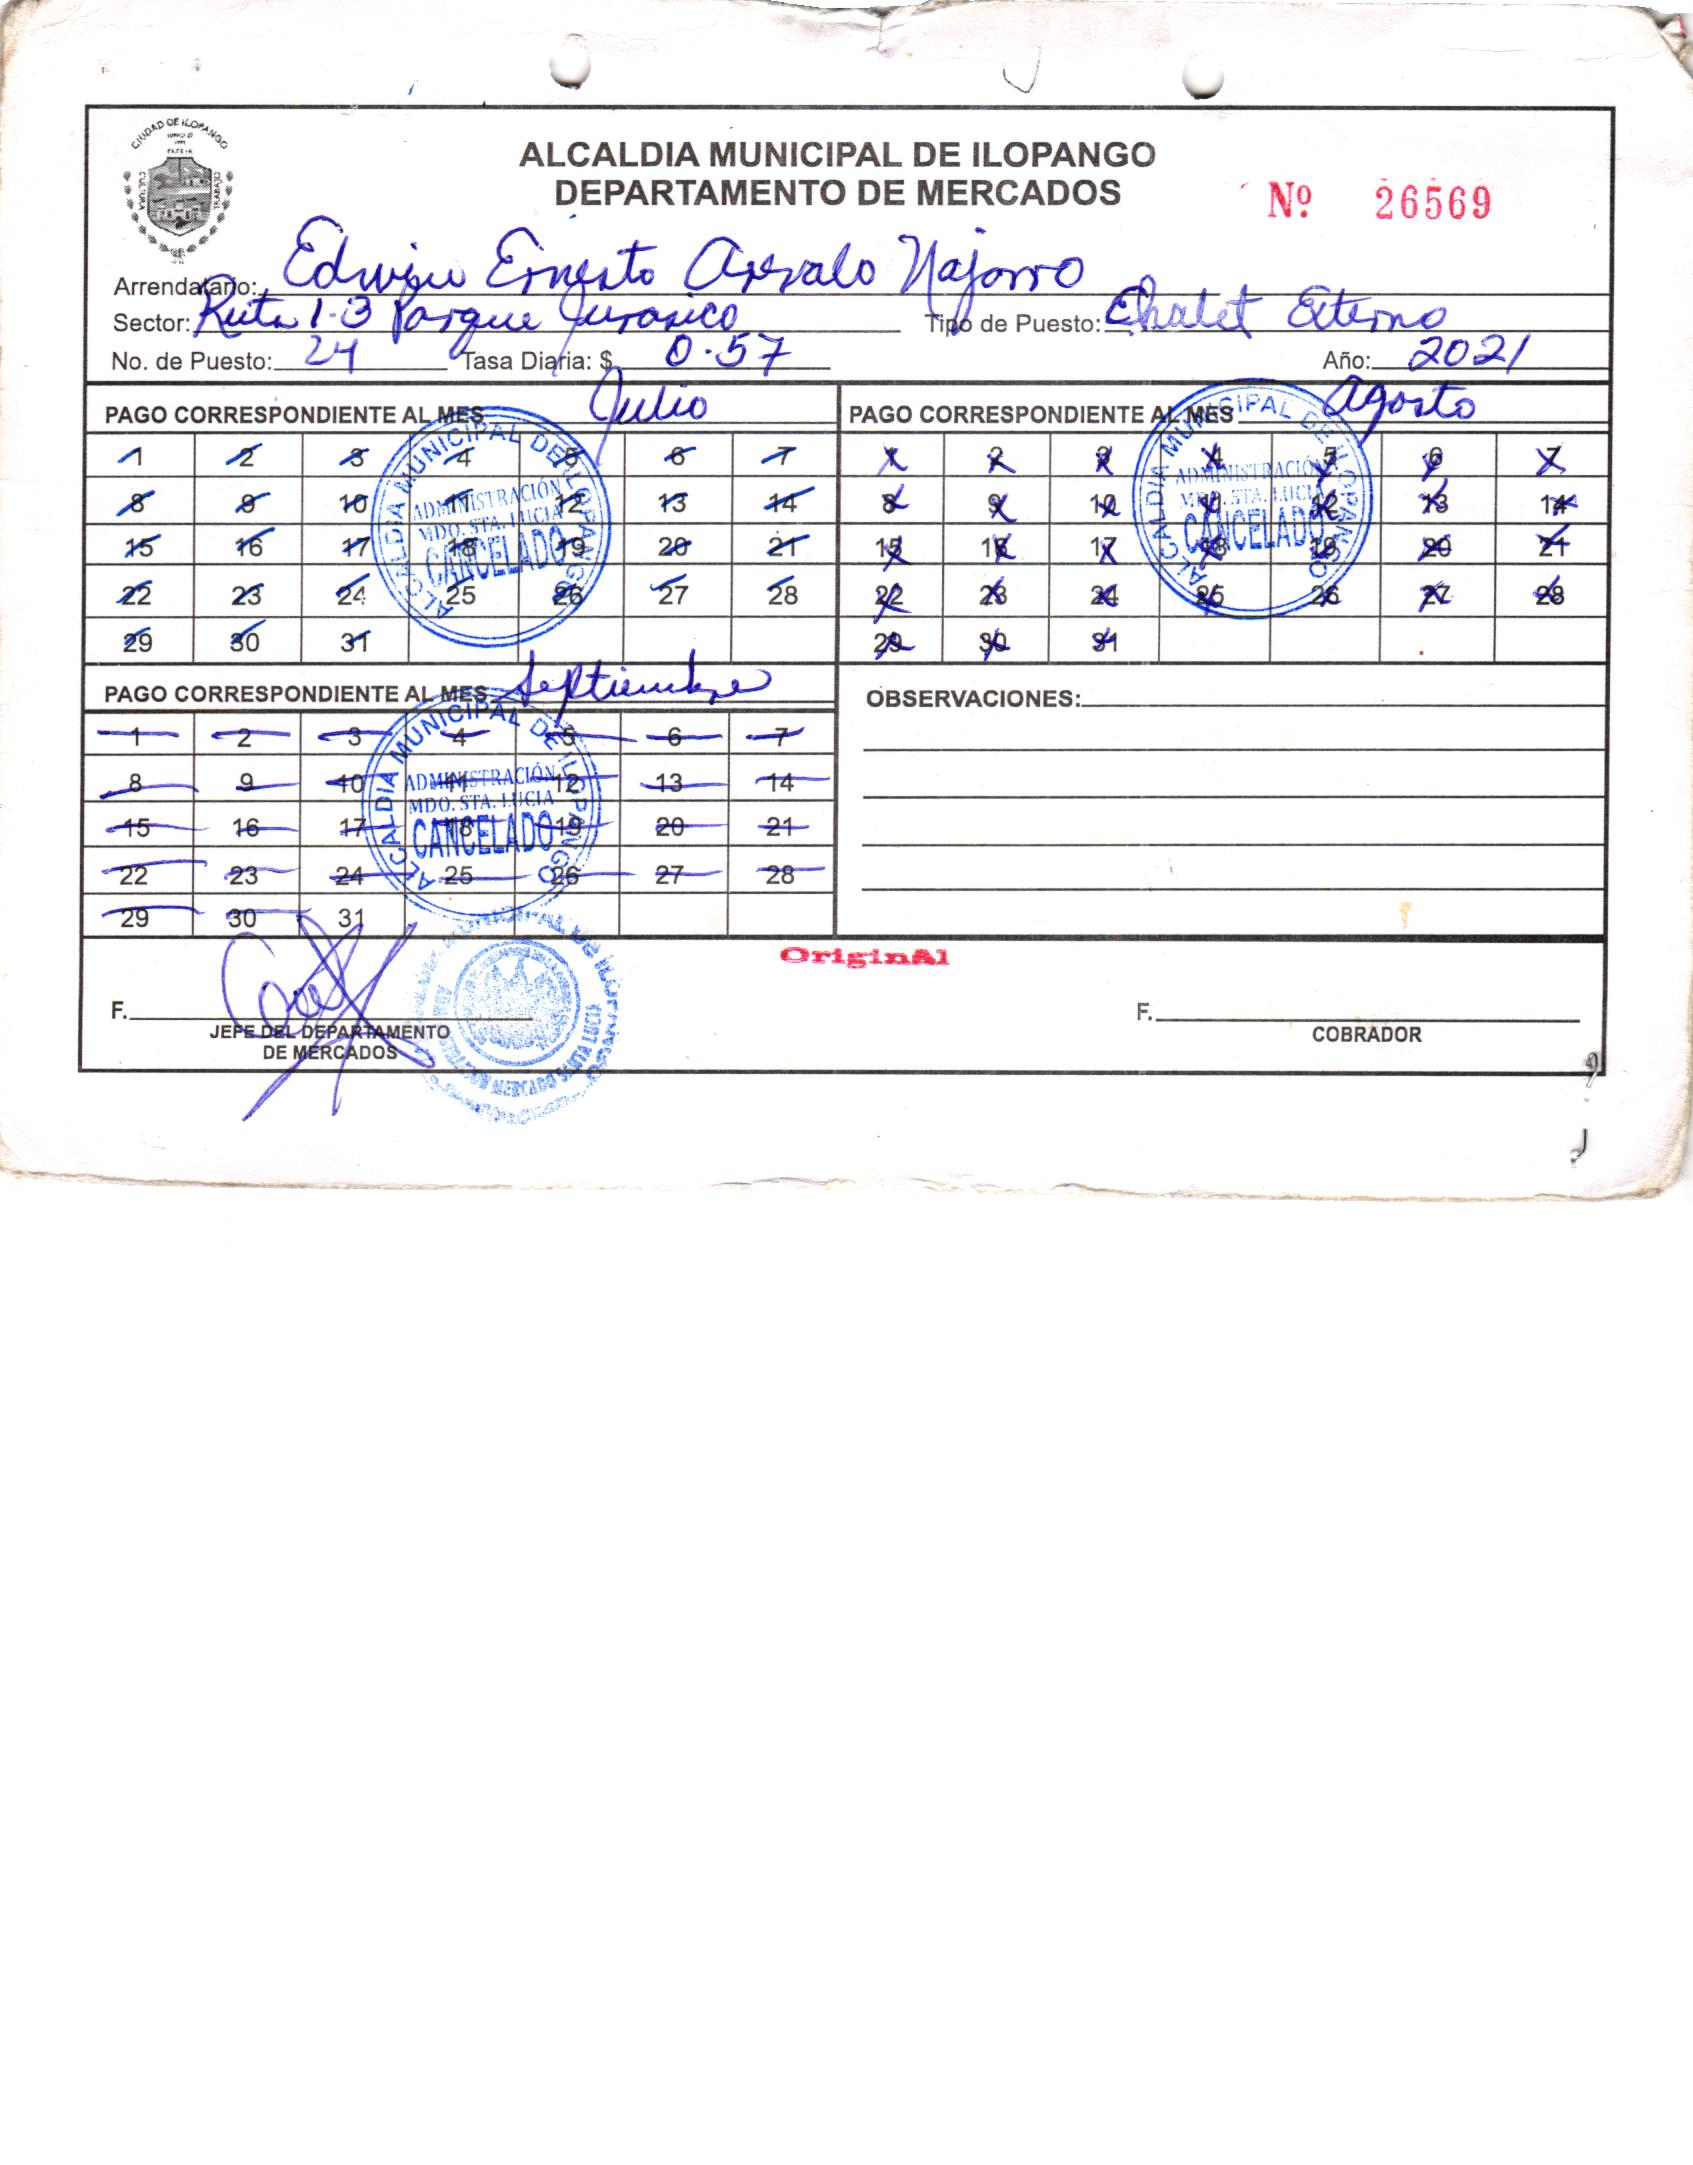 CIUDAD DE ILOPANGO
CULTURA
TRABAJO
ALCALDIA MUNICIPAL DE ILOPANGO
DEPARTAMENTO DE MERCADOS
Nº 26569
Arrendatario: Edwin Ernesto Arevalo Najarro
Sector: Ruta 1-3 Parque Jurasico Tipo de Puesto: Chalet Externo
No. de Puesto: 24 Tasa Diaria: $ 0.57 Año: 2021
PAGO CORRESPONDIENTE AL MES Julio
1 2 3 4 5 6 7
8 9 10 11 12 13 14
15 16 17 18 19 20 21
22 23 24 25 26 27 28
29 30 31
ALCALDIA MUNICIPAL DE ILOPANGO
ADMINISTRACIÓN
MDO. STA. LUCIA
CANCELADO
PAGO CORRESPONDIENTE AL MES Agosto
1 2 3 4 5 6 7
8 9 10 11 12 13 14
15 16 17 18 19 20 21
22 23 24 25 26 27 28
29 30 31
ALCALDIA MUNICIPAL DE ILOPANGO
ADMINISTRACIÓN
MDO. STA. LUCIA
CANCELADO
PAGO CORRESPONDIENTE AL MES Septiembre
1 2 3 4 5 6 7
8 9 10 11 12 13 14
15 16 17 18 19 20 21
22 23 24 25 26 27 28
29 30 31
ALCALDIA MUNICIPAL DE ILOPANGO
ADMINISTRACIÓN
MDO. STA. LUCIA
CANCELADO
OBSERVACIONES:
OriginAl
F.
JEFE DEL DEPARTAMENTO
DE MERCADOS
MUNICIPAL DE ILOPANGO
MERCADO SANTA LUCIA
F.
COBRADOR